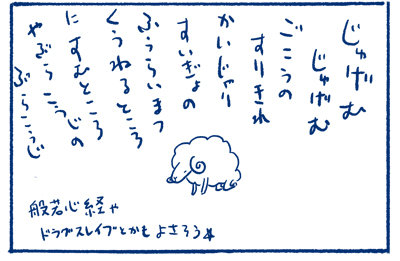 じゅげむ
じゅげむ
ごこうの
すりきれ
かいじゃり
すいぎょの
ふうらいまつ
くうねるところ
にすむところ
やぶらこうじの
ぶらこうじ
般若心経や
ドラグスレイブとかもよさそう